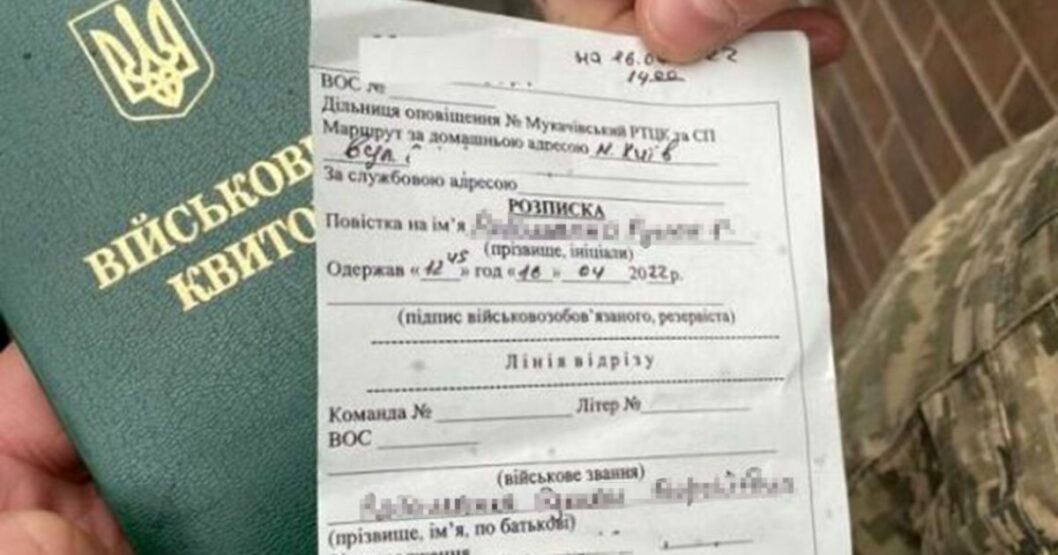 ВІЙСЬКОВ
КВИТО
на 16.0 22
14.00
ВОС №
Дільниця оповіщення № Мукачівський РТЦК та СП
Маршрут за домашньою адресою м. Київ
вул
За службовою адресою
РОЗПИСКА
Повістка на ім'я
(прізвище, ініціали)
Одержав «12 45» год «16» 04 2022 р.
(підпис військовозобов'язаного, резервіста)
Лінія відрізу
Команда № Літер №
ВОС
(військове звання)
(прізвище, ім'я, по батькові)